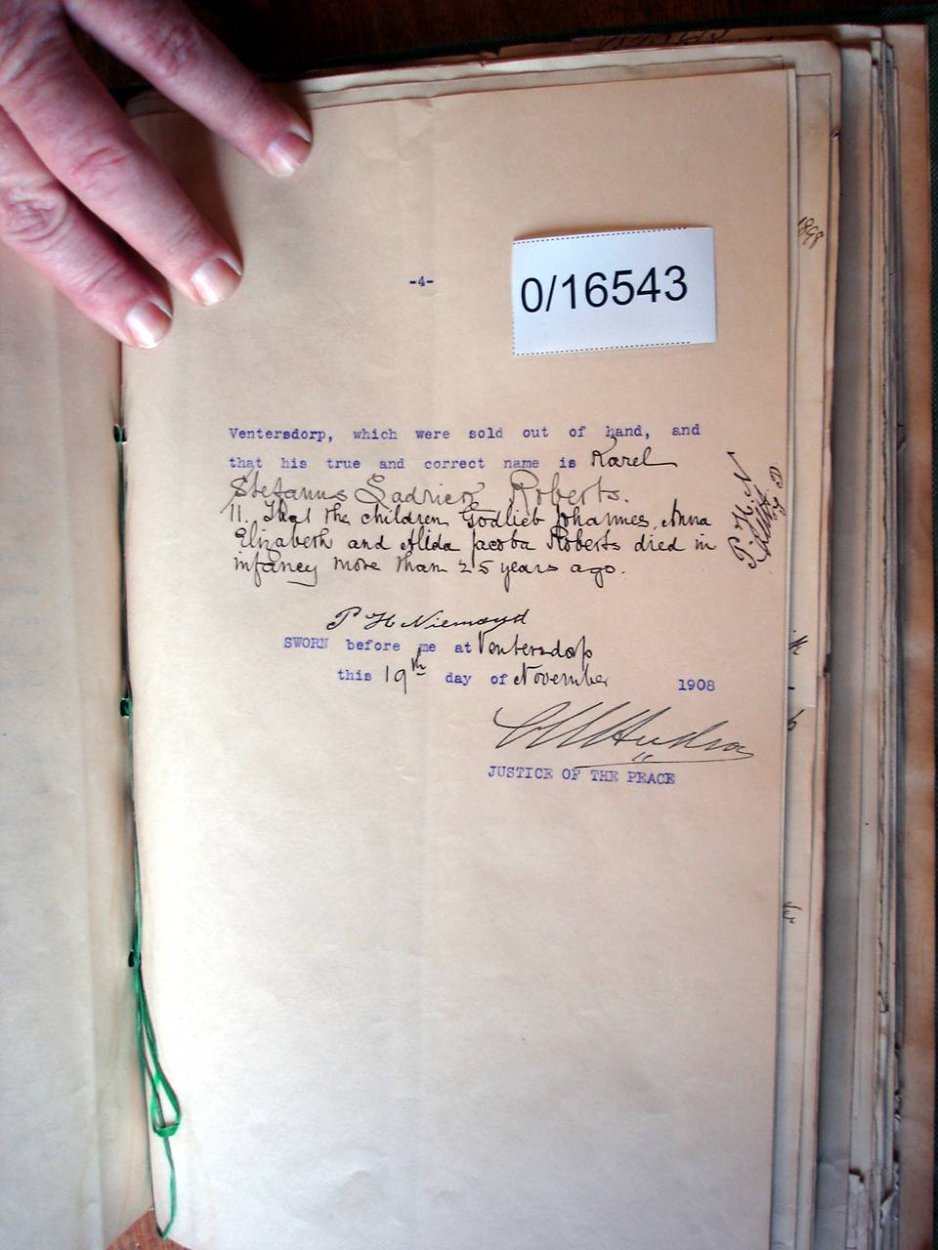 -4-
0/16543
Ventersdorp, which were sold out of hand, and
that his true and correct name is Karel
Stefanus Roberts.
11. That the children Godlieb Johannes, Anna
Elizabeth and Alida Jacoba Roberts died in
infancy more than 25 years ago.
P. H. N
P H Niemand
SWORN before me at Ventersdorp
this 19th day of November 1908
JUSTICE OF THE PEACE
1898